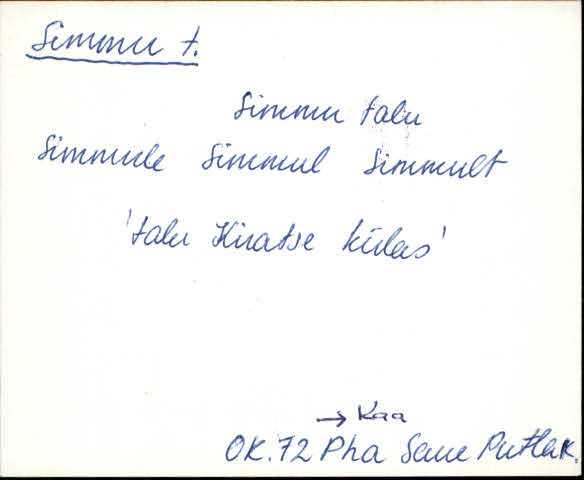 Simmu t.
Simmu talu
Simmule Simmul Simmult
'talu Kiratse külas'
→ Kaa
OK. 72 Pha Saue Putlak.